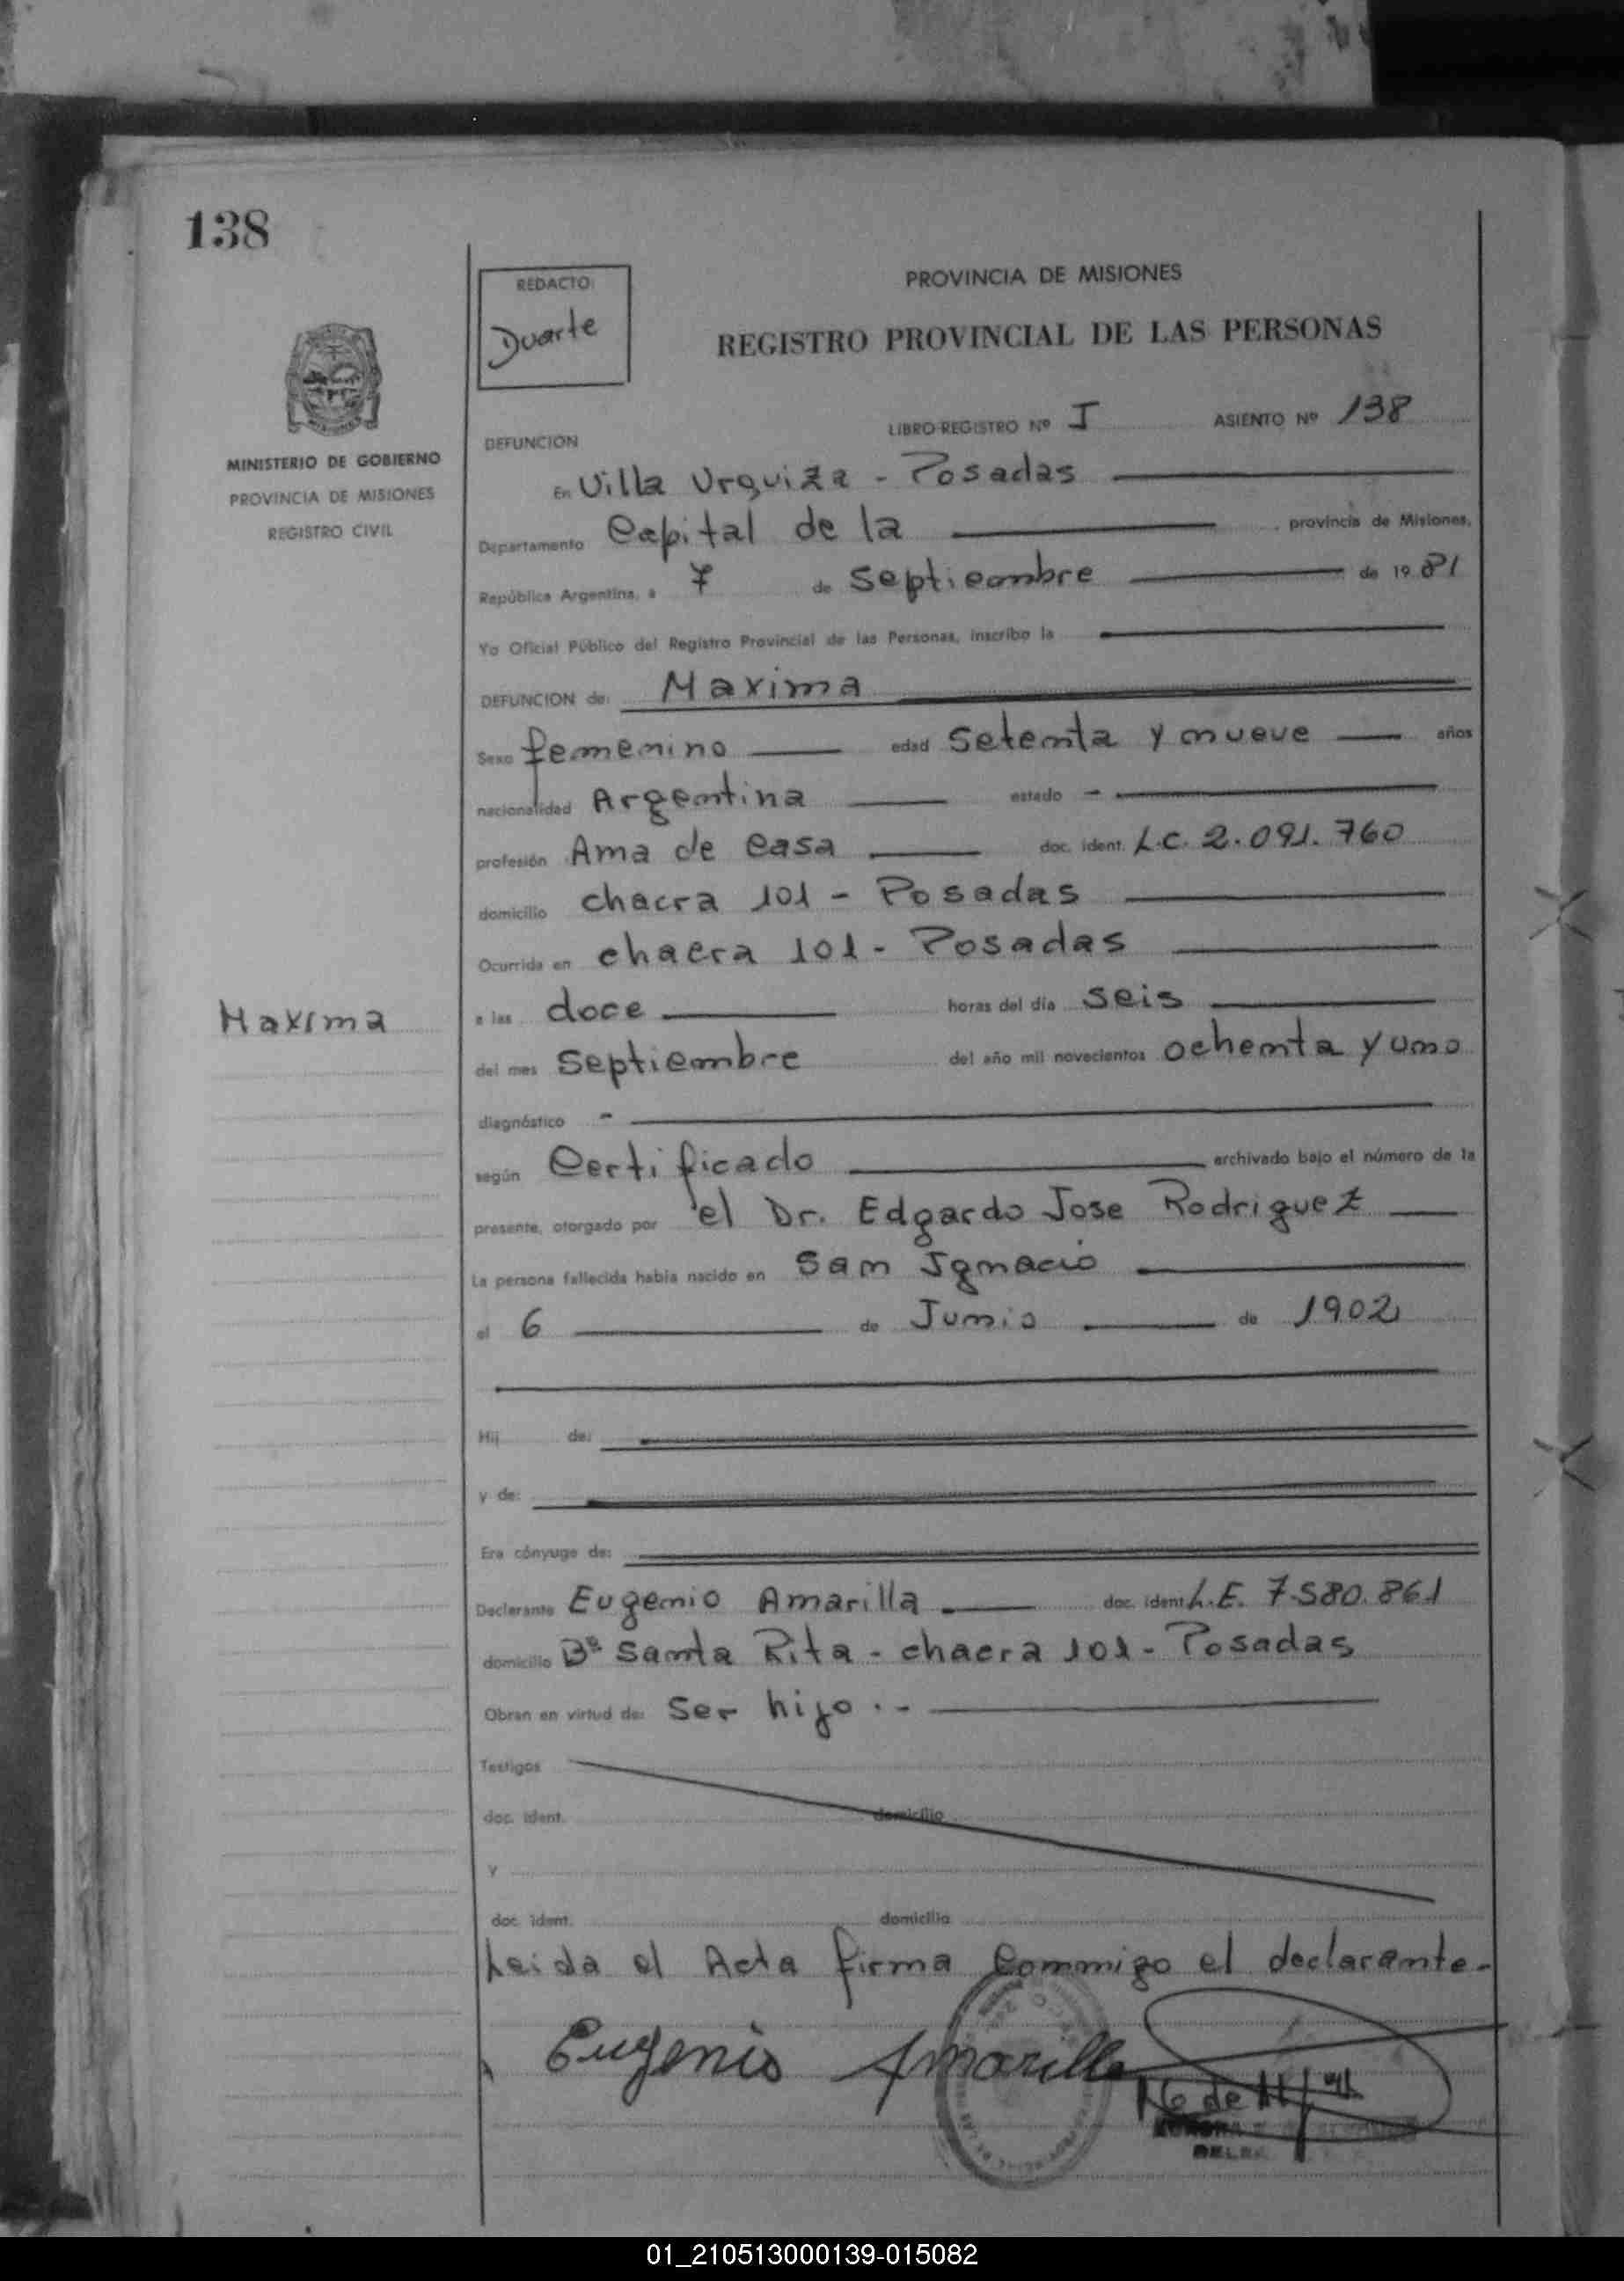 138
REDACTO:
Duarte
PROVINCIA DE MISIONES
REGISTRO PROVINCIAL DE LAS PERSONAS
MINISTERIO DE GOBIERNO
PROVINCIA DE MISIONES
REGISTRO CIVIL
DEFUNCION LIBRO-REGISTRO Nº I ASIENTO Nº 138
En Villa Urquiza - Posadas
Departamento Capital de la provincia de Misiones,
República Argentina, a 7 de Septiembre de 1981
Yo Oficial Público del Registro Provincial de las Personas, inscribo la
DEFUNCION de: Maxima
Sexo femenino edad Setenta y nueve años
nacionalidad Argentina estado -
profesión Ama de Casa doc. ident. L.C. 2.091.760
domicilio chacra 101 - Posadas
Ocurrida en chacra 101 - Posadas
Maxima
a las doce horas del día seis
del mes Septiembre del año mil novecientos ochenta y uno
diagnóstico -
según Certificado archivado bajo el número de la
presente, otorgado por el Dr. Edgardo Jose Rodriguez
La persona fallecida había nacido en San Ignacio
el 6 de Junio de 1902
Hij de:
y de:
Era cónyuge de:
Declarante Eugenio Amarilla doc. ident. L.E. 7.580.861
domicilio Bº Santa Rita - chacra 101 - Posadas
Obran en virtud de: Ser hijo.-
Testigos
doc. ident. domicilio
y
doc. ident. domicilio
Leida el Acta firma Conmigo el declarante.-
Eugenio Amarilla
01_210513000139-015082